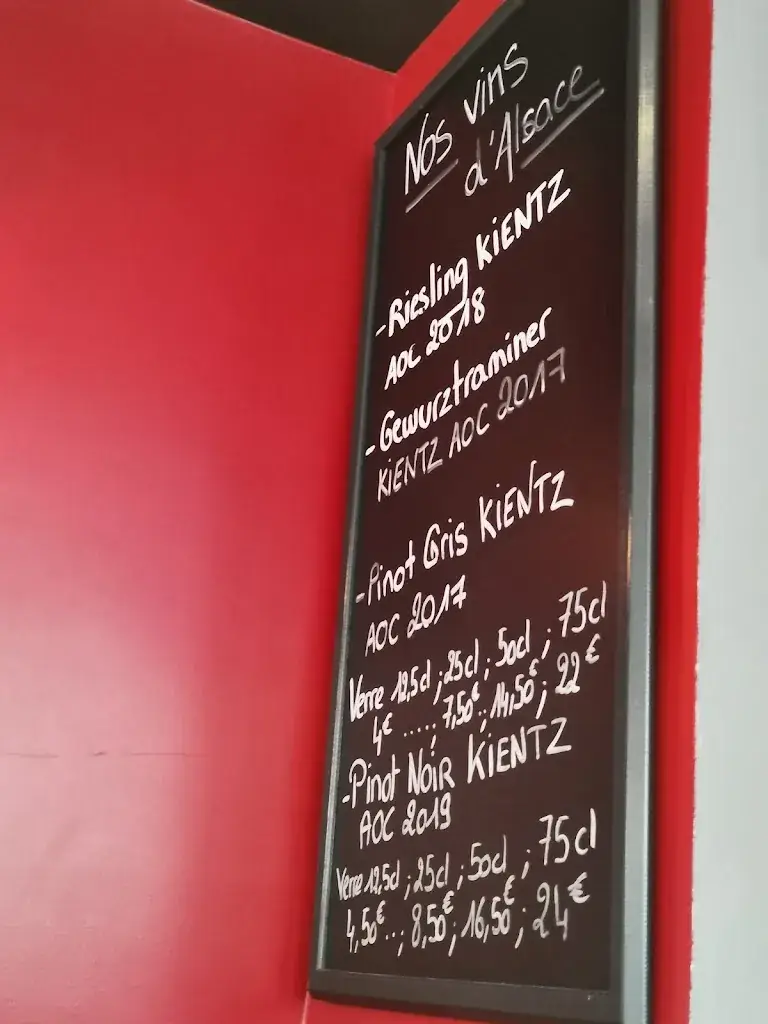 Nos vins
d'Alsace
- Riesling KiENTZ
AOC 2018
- Gewurztraminer
KiENTZ AOC 2017
- Pinot Gris KiENTZ
AOC 2017
Verre 12,5cl ; 25cl ; 50cl ; 75cl
4€ ..... ; 7,50€ ; 14,50€ ; 22€
- Pinot NoiR KiENTZ
AOC 2019
Verre 12,5cl ; 25cl ; 50cl ; 75cl
4,50€ .. ; 8,50€ ; 16,50€ ; 24€